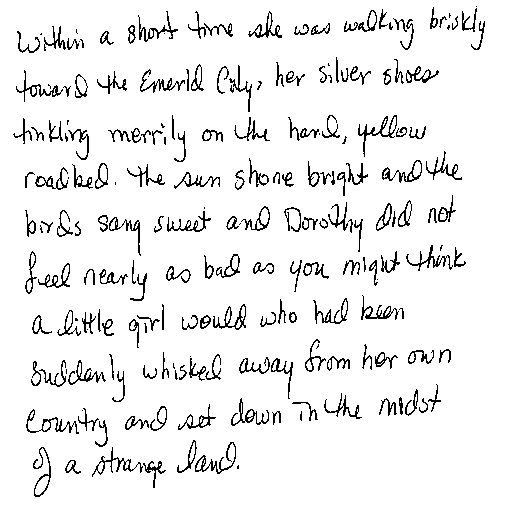 Within a short time she was walking briskly
toward the Emerld City, her silver shoes
tinkling merrily on the hard, yellow
roadbed. The sun shone bright and the
birds sang sweet and Dorothy did not
feel nearly as bad as you might think
a little girl would who had been
suddenly whisked away from her own
country and set down in the midst
of a strange land.